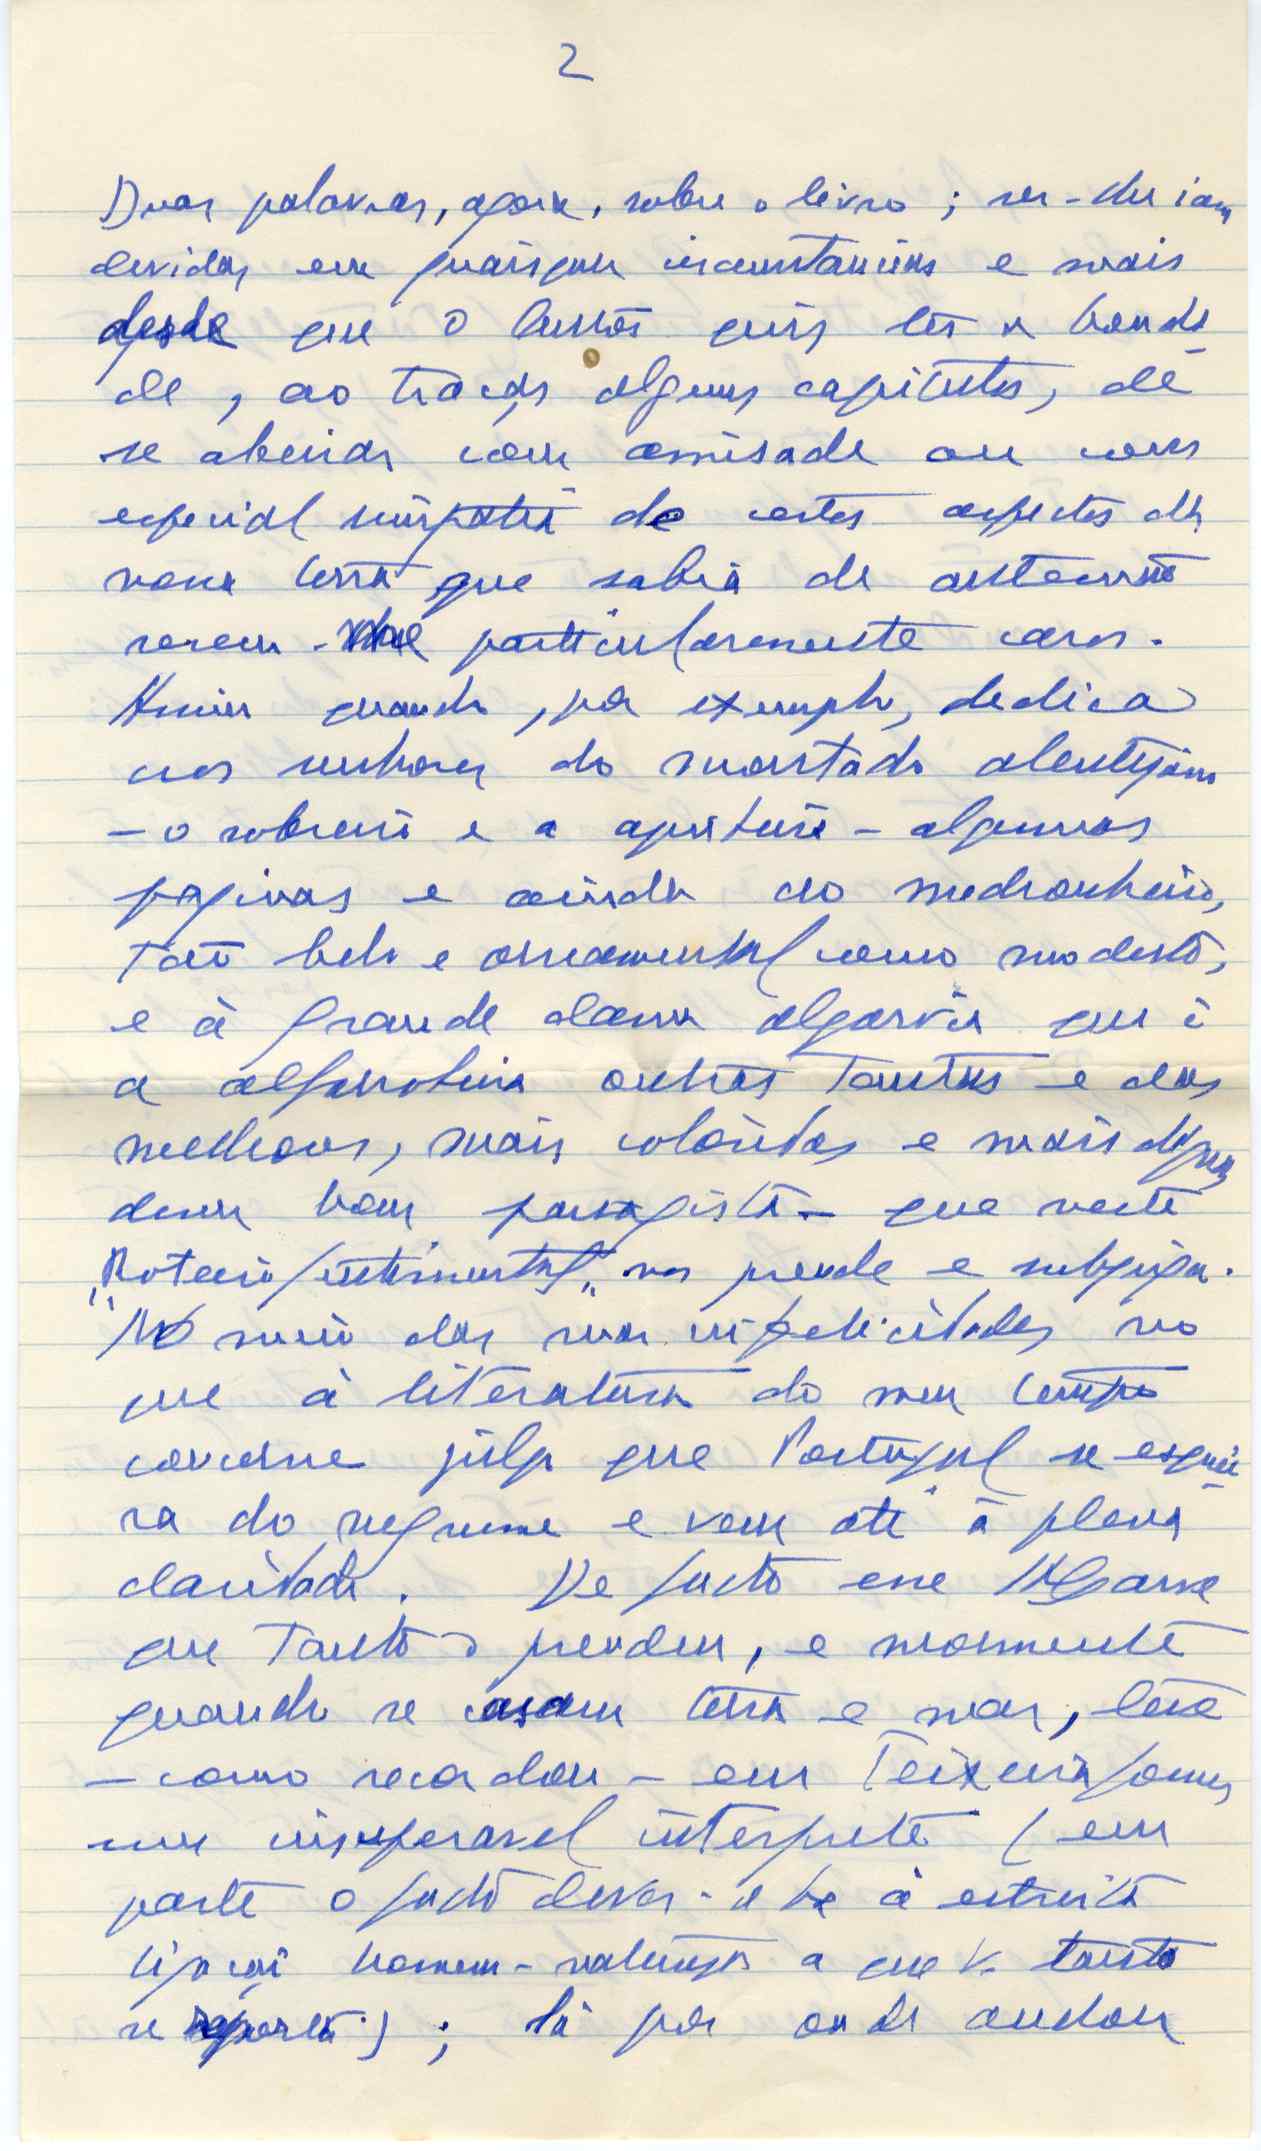 2
Duas palavras, agora, sobre o livro; ser-lhe iam
devidas em quaisquer circunstancias e mais
desde que o Autor quis ter a bonda
de, ao traçar alguns capitulos, de
se abeirar com amisade ou com
especial simpatia de certos aspectos da
nossa terra que sabia de antemão
serem-me particularmente caros.
Assim quando, por exemplo, dedica
aos senhores do montado alentejano
- o sobreiro e a azinheira - algumas
paginas e ainda ao medronheiro,
tão belo e ornamental como modesto,
e à grande dama algarvia que é
a alfarrobeira outras tantas e das
melhores, mais coloridas e mais dignas
dum bom paisagista - que neste
"Roteiro Sentimental" nos prende e subjuga.
No meio das suas infelicidades no
que à literatura do meu tempo
concerne julgo que Portugal se esguei
ra do negrume e vem até à plena
claridade. De facto esse Algarve
que tanto o prendeu, e mormente
quando se casam terra e mar, teve
- como recordou - em Teixeira Gomes
um insuperavel interprete (em
parte o facto dever-se á à estreita
ligação homem-natureza a que V. tanto
se reporta); lá por onde andou